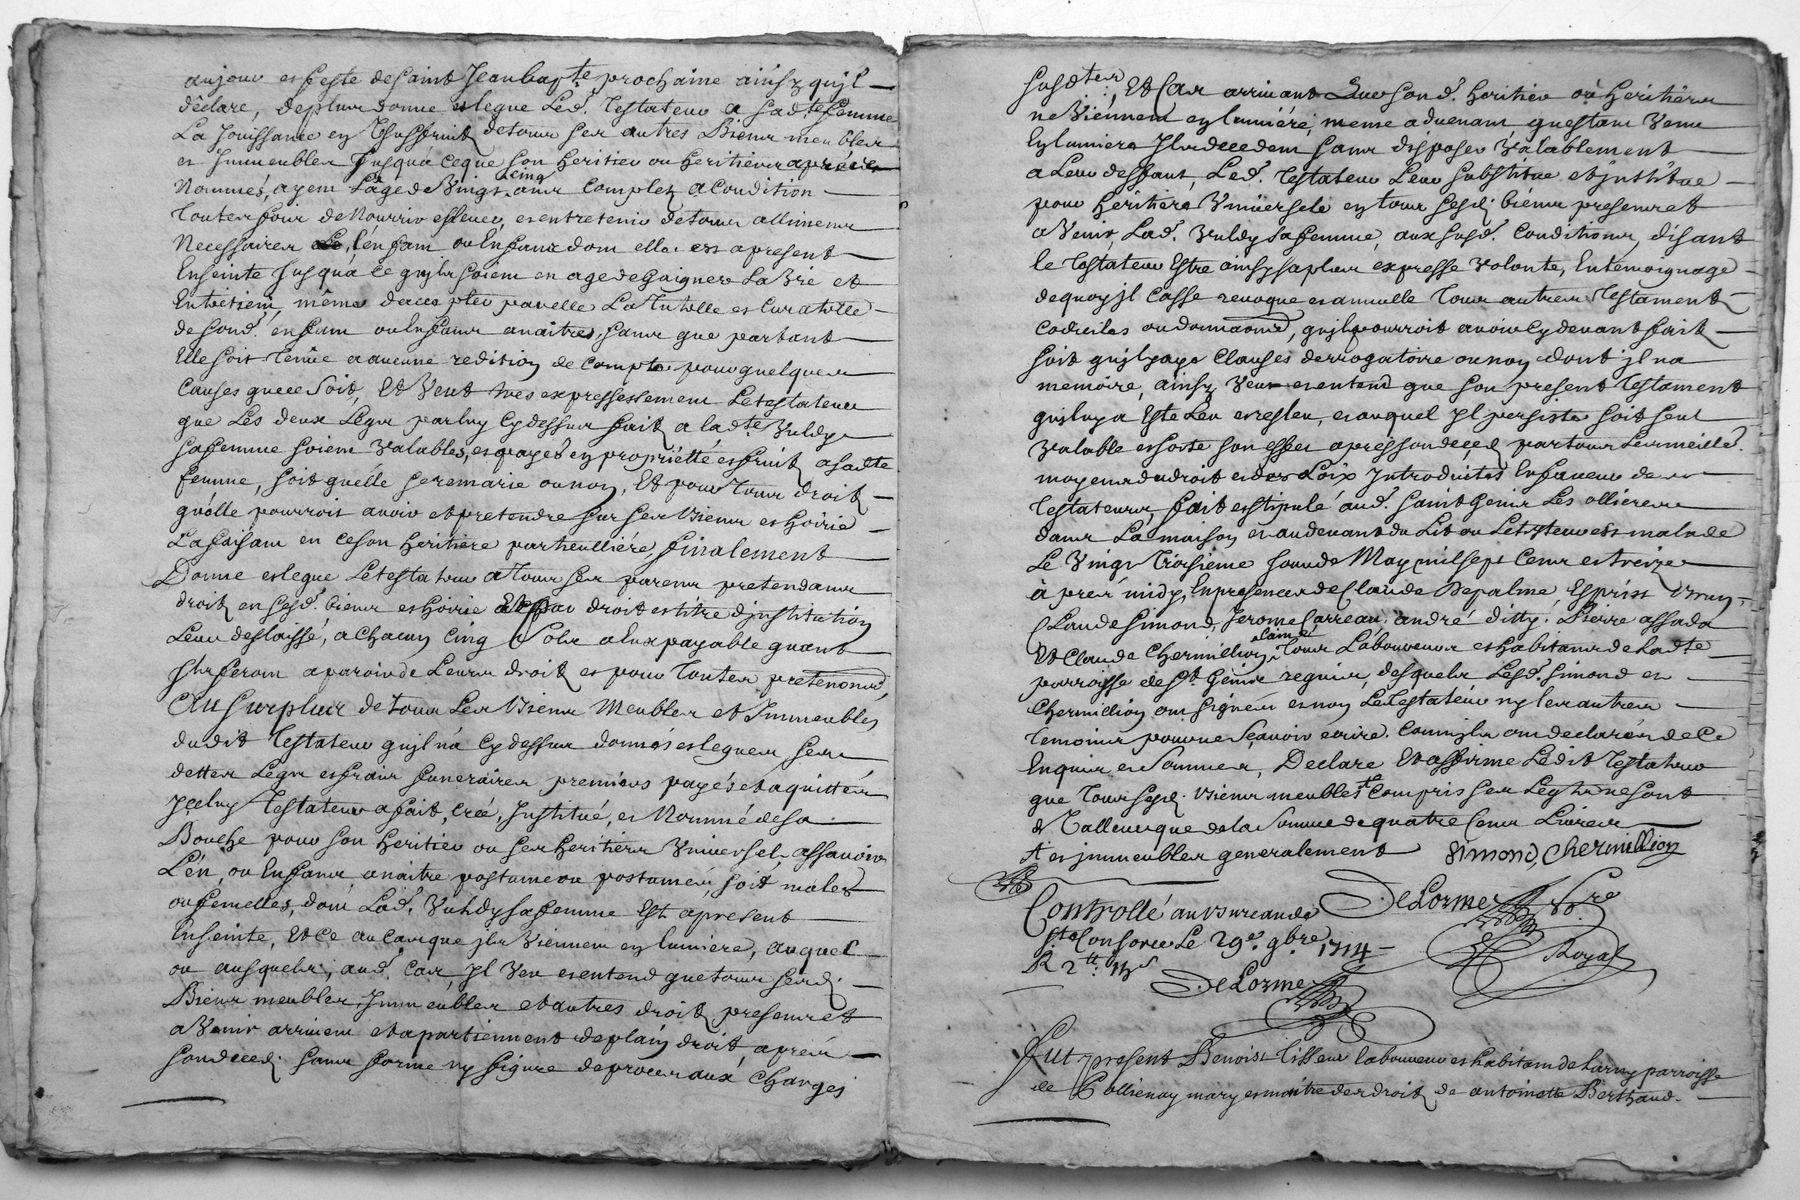 aujour et feste de saint Jean bapte prochaine ainsy quil
declare, deplus donne et legue Led. Testateur a sad.te femme
La Jouissance et Usuffruit de tous ses autres Biens meubles
et Immeubles Jusqua ceque son heritier ou heritiers apres
Nommés, ayent L'age de Vingt cinq ans complet a Condition
Toutes fois de Nourrir eslever, et entretenir de tous allimens
Necessaires l'enfant ou Enfans dont elle est apresent
Enseinte Jusqua ce quils soient en age de Gaigner La Vie et
Entretient, même La Tutelle et Curatelle
de sond. enfant ou Enfans anaitres, sans que partant
Elle soit Tenüe a aucune redition de compte pour quelques
Causes que ce Soit, Et Veut tres expressement Le testateur
que Les deux Legs par luy Cy dessus fait a lad.te Vuldy
sa femme soient Valables, et payés en proprietté et fruit a sadte
femme, soit quelle se remarie ou non, Et pour Tous droit
quelle pourroit avoir et pretendre sur ses Biens et hoirie
La faisant en ce son heritiere particulliére, finalement
Donne et legue Le testateur a Tous ses parens pretendans
droit en sesd. biens et hoirie Et par droit et titre dinstitution
Leur deslaissé, a chacun Cinq Sols a Eux payable quant
Ils feront aparoir de Leurs droit et pour Toutes pretentions,
Au Surplus de tous Les Biens Meubles et Immeubles
dudit Testateur quil na Cy dessus donnés et legues ses
dettes Legs et frais funeraires premiers payés et aquittés
Jcelluy Testateur a fait, creé, Institué, et Nommé de sa
Bouche pour son heritier ou ses heritiers Universel, assavoir
L'en, ou Enfans a naitre postume ou postumes, soit males
ou femelles, dont Lad. Vuldy sa femme Est apresent
Enseinte, Et Ce au Cas que Ils Viennent en lumiere, auquel
ou ausquels, aud. Cas, Il Veu et entend que tous sesd.
Biens meubles, Immeubles et autres droit present et
a Venir arrivent et apartiennent de plain droit, apres
son deced. sans forme ny figure de proces aux Charges
susd.tes, Et Cas arrivant Que sond. heritier ou heritiers
ne Viennent en lumiere, meme advenant questant Venu
En lumiere Ils decedent sans disposer Valablement
a Leur deffaut, Led. Testateur Leur substitue et institue
pour heritiere Universele en tous sesd. biens present et
a Venir, Lad. Vuldy sa femme, aux susd. Conditions, disant
le Testateur Estre ainsy sa plus expresse volonte, En temoignage
dequoy il Casse revoque et annulle Tous autres Testament
Codiciles ou donnaons, quil pourroit avoir Cy devant fait
soit quil y aye Clauses derrogatoire ou non dont jl na
memoire, ainsy Veut et entend que son present Testament
quil luy a Este Leu et resleu, et auquel Il persiste soit seul
Valable et sorte son effet apres son deced par tous Les meille.
moyens du droit et des Loix Introduites En faveur des
Testateurs, fait et stipulé aud. saint Genis Les ollieres
dans La maison et au devant du Lit ou Le testateur est malade
Le Vingt Troisieme Jour de May mil sept Cent et treize
à près midy, En presence de Claude Depalme, Esprist
Claude Simond, Jerome Carreau, andré ditty. Pierre assada
Et Claude Chermillion Tous Laboureurs et habitans de Lad.te
parroisse de St. Genis requis, desquels Lesd. Simond et
Chermillion ont signés et non Le Testateur ny les autres
Temoins pour ne Sçavoir ecrire. Comme ils ont declarés de Ce
Enquis et Sommés, Declare Et affirme Ledit Testateur
que Tous sesd. biens meubles + Compris ses Legts ne sont
de Valleur que de la Somme de quatre Cents Livres
+ et jmmeubles generalement Simond, Chermillion
Controllé au Bureau de Delorme No.re
Ste Consorce Le 29e 9bre 1714 Royal
R 2tt
Delorme
Fut present Benoist Tisseur laboureur et habitant de Larny parroisse
de Pollienay mary et maitre des droit de antoinette Berthaud.